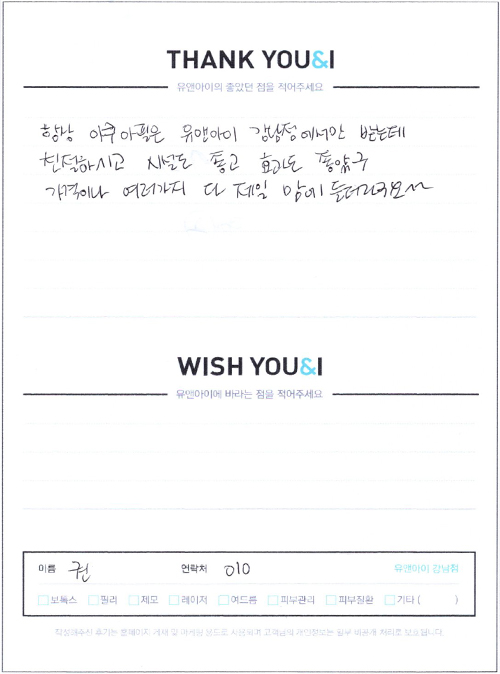 THANK YOU&I
유앤아이의 좋았던 점을 적어주세요
항상 아쿠아필은 유앤아이 강남점에서만 받는데
친절하시고 시설도 좋고 효과도 좋았구
가격이나 여러가지 다 제일 맘에 들더라구요~
WISH YOU&I
유앤아이에 바라는 점을 적어주세요
이름 권 연락처 010 유앤아이 강남점
보톡스 필러 제모 레이저 여드름 피부관리 피부질환 기타 ( )
작성해주신 후기는 홈페이지 게재 및 마케팅 용도로 사용되며 고객님의 개인정보는 일부 비공개 처리로 보호됩니다.